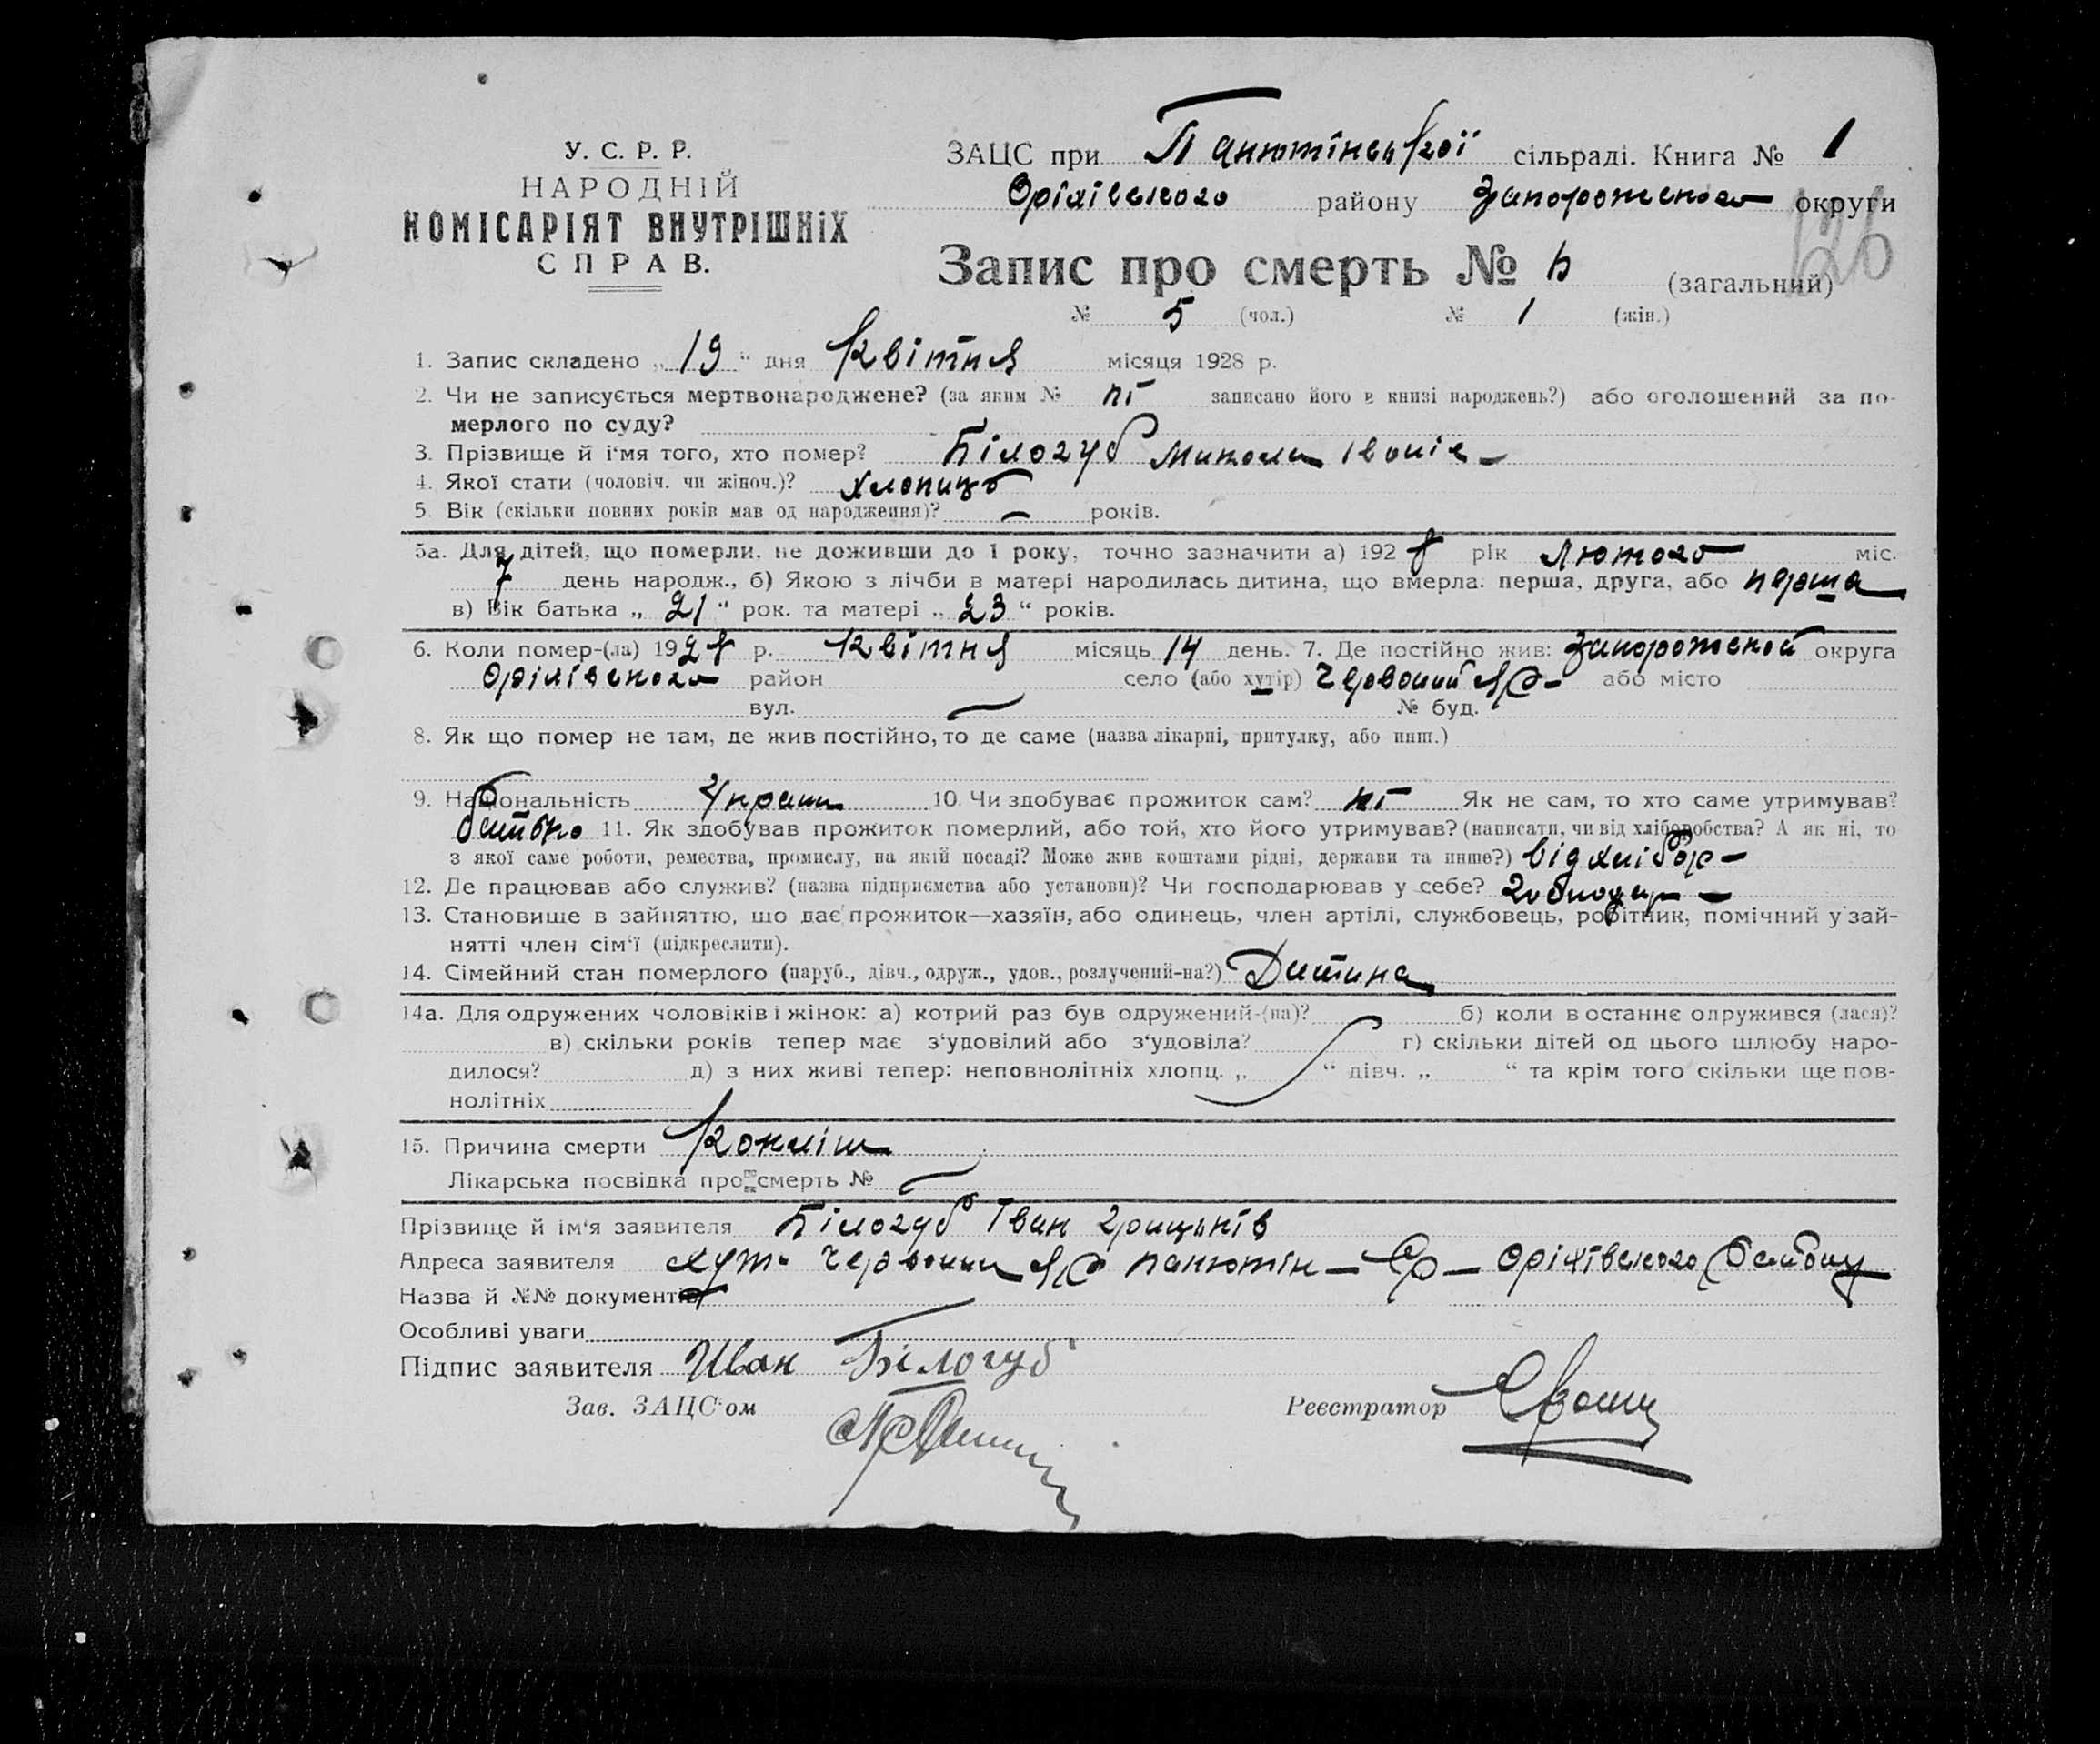 У. С. Р. Р.
НАРОДНІЙ
КОМІСАРІЯТ ВНУТРІШНІХ
СПРАВ.
ЗАЦС при Панютінської сільраді. Книга № 1
Оріхівського району Запорожського округи
126
Запис про смерть № 6 (загальний)
№ 5 (чол.) № 1 (жін.)
1. Запис складено „ 19 “ дня Квітня місяця 1928 р.
2. Чи не записується мертвонароджене? (за яким № ні записано його в книзі народжень?) або оголошений за по-
мерлого по суду?
3. Прізвище й ім'я того, хто помер? Білогуб Микола Іванів
4. Якої стати (чоловіч. чи жіноч.)? хлопиць
5. Вік (скільки повних років мав од народження)? — років.
5а. Для дітей, що померли, не доживши до 1 року, точно зазначити а) 1928 рік Лютого міс.
7 день народж., б) Якою з лічби в матері народилась дитина, що вмерла: перша, друга, або перша
в) Вік батька „ 21 “ рок. та матері „ 23 “ років.
6. Коли помер-(ла) 1928 р. Квітня місяць 14 день. 7. Де постійно жив: Запорожской округа
Оріхівського район село (або хутір) Червоний Яр або місто
вул. — № буд.
8. Як що помер не там, де жив постійно, то де саме (назва лікарні, притулку, або инш.)
9. Національність Украин 10. Чи здобуває прожиток сам? ні Як не сам, то хто саме утримував?
батько 11. Як здобував прожиток померлий, або той, хто його утримував? (написати, чи від хліборобства? А як ні, то
з якої саме роботи, ремества, промислу, на якій посаді? Може жив коштами рідні, держави та инше?) від хлібор —
12. Де працював або служив? (назва підприємства або установи)? Чи господарював у себе?
13. Становище в зайняттю, що дає прожиток—хазяїн, або одинець, член артілі, службовець, робітник, помічний у зай-
нятті член сім'ї (підкреслити).
14. Сімейний стан померлого (паруб., дівч., одруж., удов., розлучений-на?) Дитина
14а. Для одружених чоловіків і жінок: а) котрий раз був одружений-(на)? б) коли в останнє одружився (лася)?
в) скільки років тепер має з'удовілий або з'удовіла? г) скільки дітей од цього шлюбу наро-
дилося? д) з них живі тепер: неповнолітніх хлопц. „ “ дівч. „ “ та крім того скільки ще пов-
нолітніх
15. Причина смерти Коклиш
Лікарська посвідка про смерть № —
Прізвище й ім'я заявителя Білогуб Іван Грицьків
Адреса заявителя хут. Червоний Яр Панютін — Ср — Оріхівского району
Назва й №№ документів
Особливі уваги
Підпис заявителя Иван Білогуб
Зав. ЗАЦС'ом Реєстратор